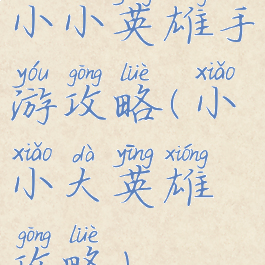 小小英雄手
yóu gōng lüè xiǎo
游攻略(小
xiǎo dà yīng xióng
小大英雄
gōng lüè
攻略)